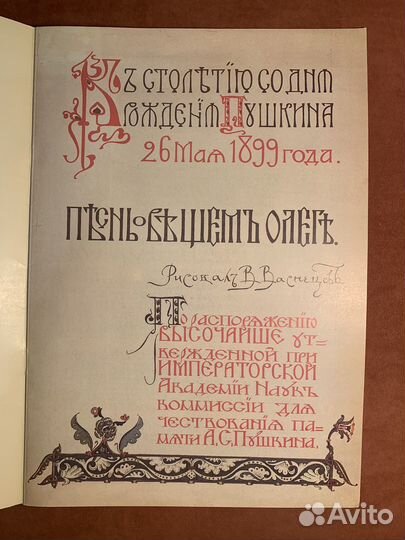 Къ столѣтію со дня
рожденія Пушкина
26 мая 1899 года.
Пѣснь о Вѣщемъ Олегѣ.
Рисовалъ В. Васнецовъ
По распоряженію
высочайше ут-
вержденной при
Императорской
Академіи Наукъ
коммиссіи для
чествованія па-
мяти А.С. Пушкина.
Avito